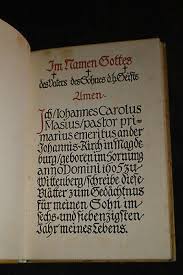 Im Namen Gottes
des Vaters des Sohnes d. h. Geists
Amen.
Ich/Johannes Carolus
Masius/pastor pri⸗
marius emeritus an der
Johannis-Kirch in Magde
burg/geboren im Hornung
anno Domini 1605 zu
Wittenberg/schreibe diese
Blätter zum Gedächtnus
für meinen Sohn im
sechs- und siebenzigsten
Jahr meines Lebens.